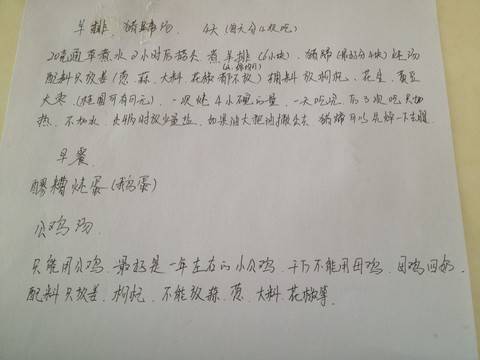 羊排、猪蹄汤、 4天(每天分4次吃)
20克通草煮水2小时后捞去 煮羊排(6小块)、猪蹄(最好分4块)炖汤
配料只放姜(葱、蒜、大料、花椒都不放)辅料放枸杞、花生、黄豆
大枣(桂圆可有可无)、一次炖4小碗的量、一天吃完 后3次吃只加
热、不加水、头4时放少量盐、如果油大把油撇出去 猪蹄可以先焯一下去腥
早餐
醪糟炖蛋(鹅蛋)
公鸡汤
只能用公鸡、最好是一年左右的小公鸡、千万不能用母鸡、母鸡回奶、
配料只放姜、枸杞、不能放蒜、葱、大料、花椒等.